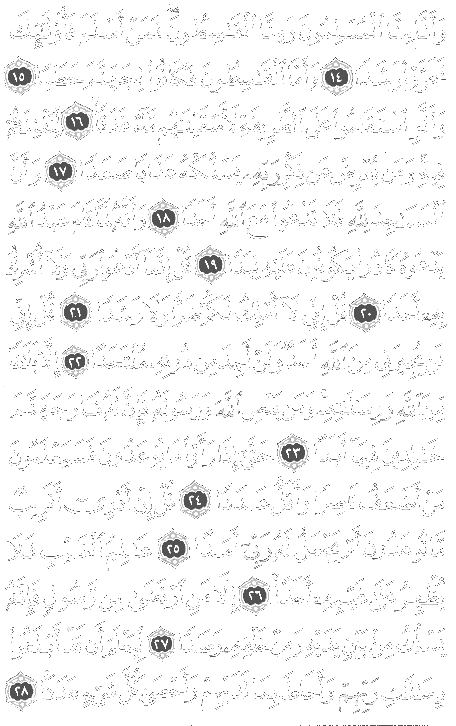 وَأَنَّا مِنَّا الْمُسْلِمُونَ وَمِنَّا الْقَاسِطُونَ فَمَنْ أَسْلَمَ فَأُولَٰئِكَ
تَحَرَّوْا رَشَدًا ١٤ وَأَمَّا الْقَاسِطُونَ فَكَانُوا لِجَهَنَّمَ حَطَبًا ١٥
وَأَلَّوِ اسْتَقَامُوا عَلَى الطَّرِيقَةِ لَأَسْقَيْنَاهُم مَّاءً غَدَقًا ١٦ لِّنَفْتِنَهُمْ
فِيهِ وَمَن يُعْرِضْ عَن ذِكْرِ رَبِّهِ يَسْلُكْهُ عَذَابًا صَعَدًا ١٧ وَأَنَّ
الْمَسَاجِدَ لِلَّهِ فَلَا تَدْعُوا مَعَ اللَّهِ أَحَدًا ١٨ وَأَنَّهُ لَمَّا قَامَ عَبْدُ اللَّهِ
يَدْعُوهُ كَادُوا يَكُونُونَ عَلَيْهِ لِبَدًا ١٩ قُلْ إِنَّمَا أَدْعُو رَبِّي وَلَا أُشْرِكُ
بِهِ أَحَدًا ٢٠ قُلْ إِنِّي لَا أَمْلِكُ لَكُمْ ضَرًّا وَلَا رَشَدًا ٢١ قُلْ إِنِّي
لَن يُجِيرَنِي مِنَ اللَّهِ أَحَدٌ وَلَنْ أَجِدَ مِن دُونِهِ مُلْتَحَدًا ٢٢ إِلَّا بَلَاغًا
مِّنَ اللَّهِ وَرِسَالَاتِهِ وَمَن يَعْصِ اللَّهَ وَرَسُولَهُ فَإِنَّ لَهُ نَارَ جَهَنَّمَ
خَالِدِينَ فِيهَا أَبَدًا ٢٣ حَتَّىٰ إِذَا رَأَوْا مَا يُوعَدُونَ فَسَيَعْلَمُونَ
مَنْ أَضْعَفُ نَاصِرًا وَأَقَلُّ عَدَدًا ٢٤ قُلْ إِنْ أَدْرِي أَقَرِيبٌ
مَّا تُوعَدُونَ أَمْ يَجْعَلُ لَهُ رَبِّي أَمَدًا ٢٥ عَالِمُ الْغَيْبِ فَلَا
يُظْهِرُ عَلَىٰ غَيْبِهِ أَحَدًا ٢٦ إِلَّا مَنِ ارْتَضَىٰ مِن رَّسُولٍ فَإِنَّهُ
يَسْلُكُ مِن بَيْنِ يَدَيْهِ وَمِنْ خَلْفِهِ رَصَدًا ٢٧ لِّيَعْلَمَ أَن قَدْ أَبْلَغُوا
رِسَالَاتِ رَبِّهِمْ وَأَحَاطَ بِمَا لَدَيْهِمْ وَأَحْصَىٰ كُلَّ شَيْءٍ عَدَدًا ٢٨